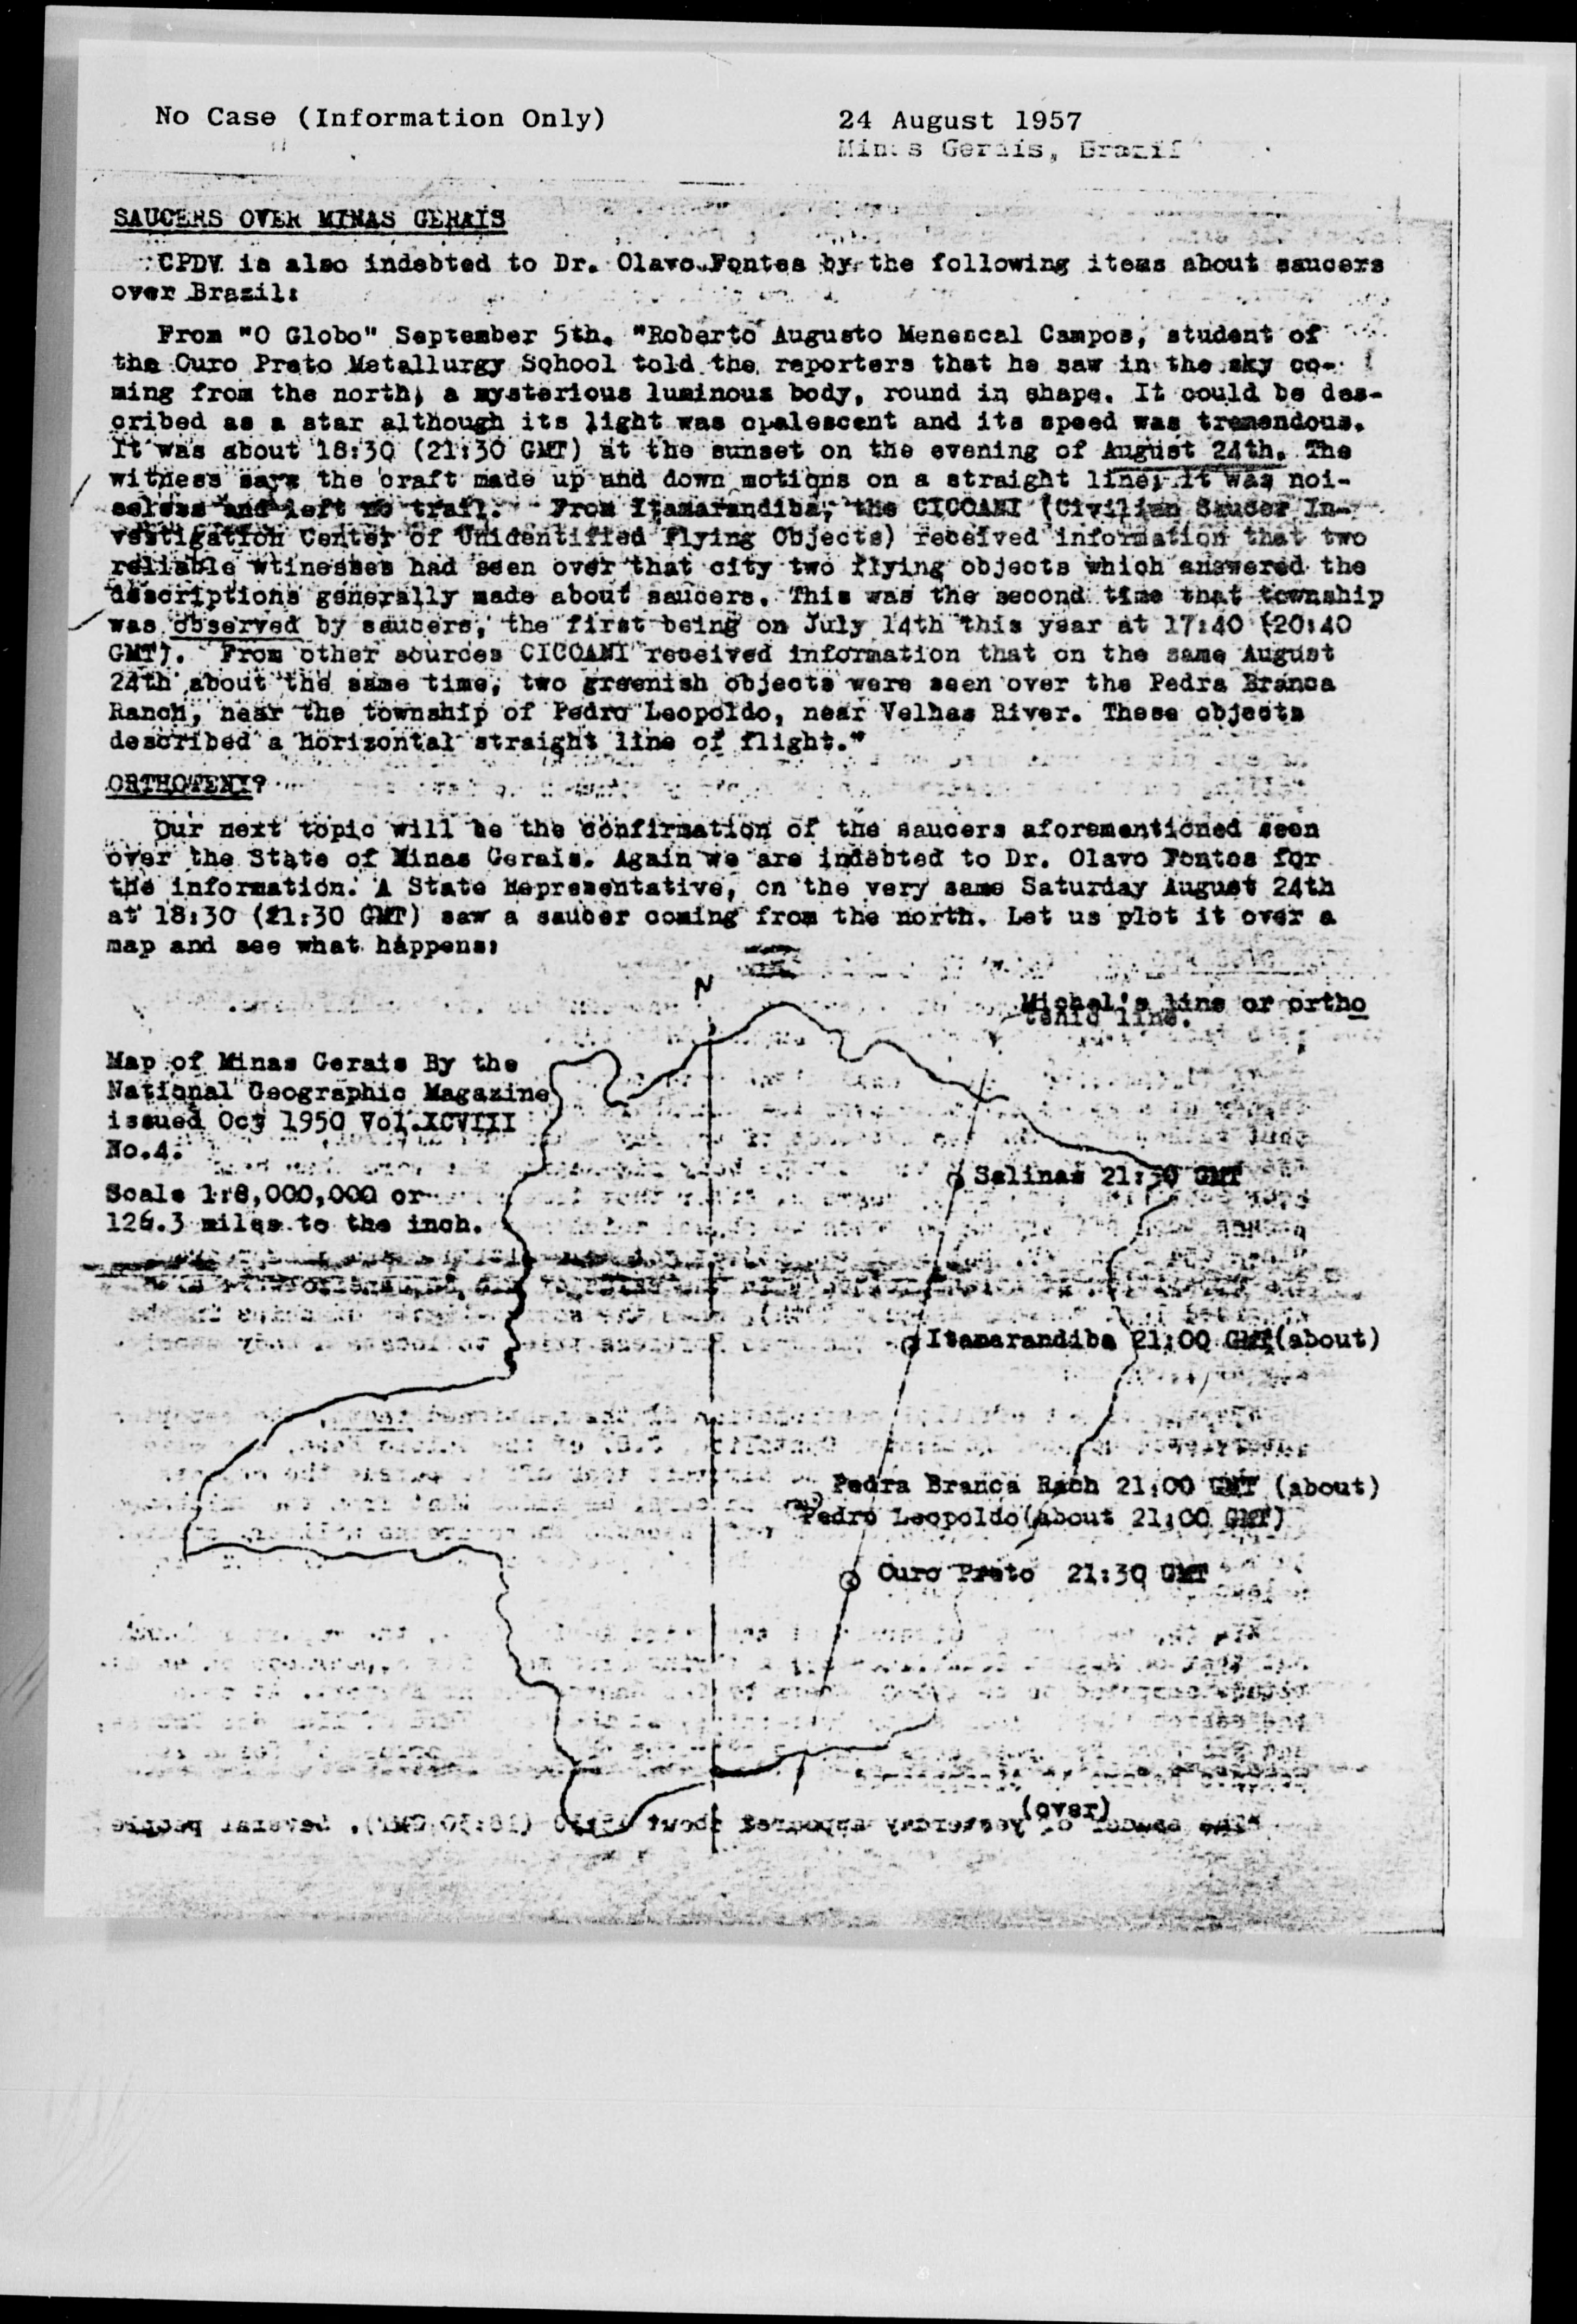 No Case (Information Only)
24 August 1957
Minas Gerais, Brazil
SAUCERS OVER MINAS GERAIS
CPDV is also indebted to Dr. Olavo Fontes by the following items about saucers
over Brazil:
From "O Globo" September 5th. "Roberto Augusto Menescal Campos, student of
the Ouro Preto Metallurgy School told the reporters that he saw in the sky co-
ming from the north, a mysterious luminous body, round in shape. It could be des-
cribed as a star although its light was opalescent and its speed was tremendous.
It was about 18:30 (21:30 GMT) at the sunset on the evening of August 24th. The
witness says the craft made up and down motions on a straight line; it was noi-
seless and left no trail. From Itamarandiba, the CICOANI (Civilian Saucer In-
vestigation Center of Unidentified Flying Objects) received information that two
reliable wtinesses had seen over that city two flying objects which answered the
descriptions generally made about saucers. This was the second time that township
was observed by saucers, the first being on July 14th this year at 17:40 (20:40
GMT). From other sources CICOANI received information that on the same August
24th about the same time, two greenish objects were seen over the Pedra Branca
Ranch, near the township of Pedro Leopoldo, near Velhas River. These objects
described a horizontal straight line of flight."
ORTHOTENY?
Our next topic will be the confirmation of the saucers aforementioned seen
over the State of Minas Gerais. Again we are indebted to Dr. Olavo Fontes for
the information. A State Representative, on the very same Saturday August 24th
at 18:30 (21:30 GMT) saw a sauber coming from the north. Let us plot it over a
map and see what happens:
N
Michel's line or ortho
tenic line.
Map of Minas Gerais By the
National Geographic Magazine
issued Oct 1950 Vol.XCVIII
No.4.
Salinas 21:30 GMT
Scale 1:8,000,000 or
126.3 miles to the inch.
Itamarandiba 21:00 GMT(about)
Pedra Branca Rach 21:00 GMT (about)
Pedro Leopoldo(about 21:00 GMT)
Ouro Preto 21:30 GMT
(over)